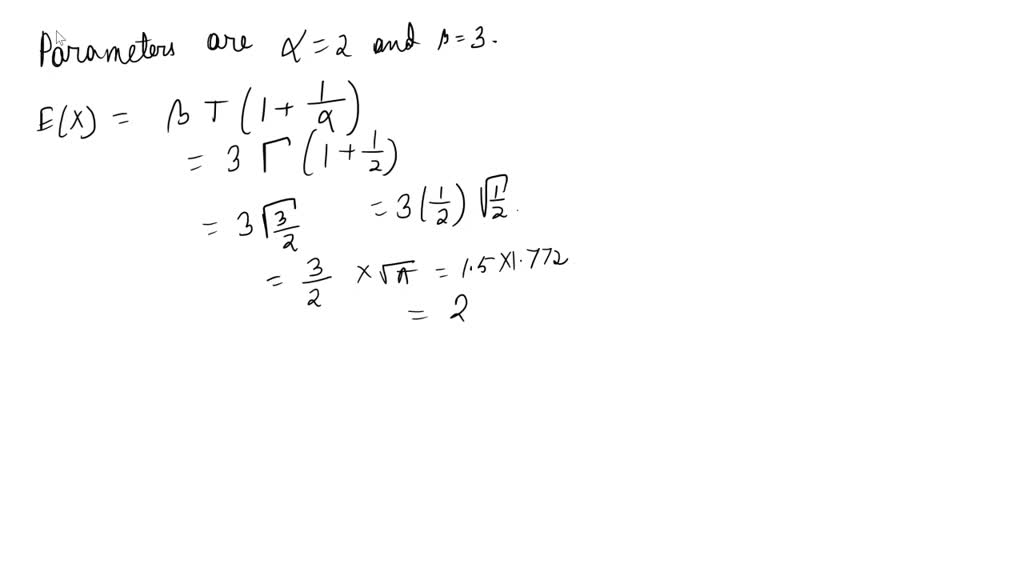 Parameters are α = 2 and β = 3.
E(X) = β Γ (1 + 1/α)
= 3 Γ (1 + 1/2)
= 3 Γ3/2 = 3 (1/2) √1/2.
= 3/2 × √π = 1.5 × 1.772
= 2